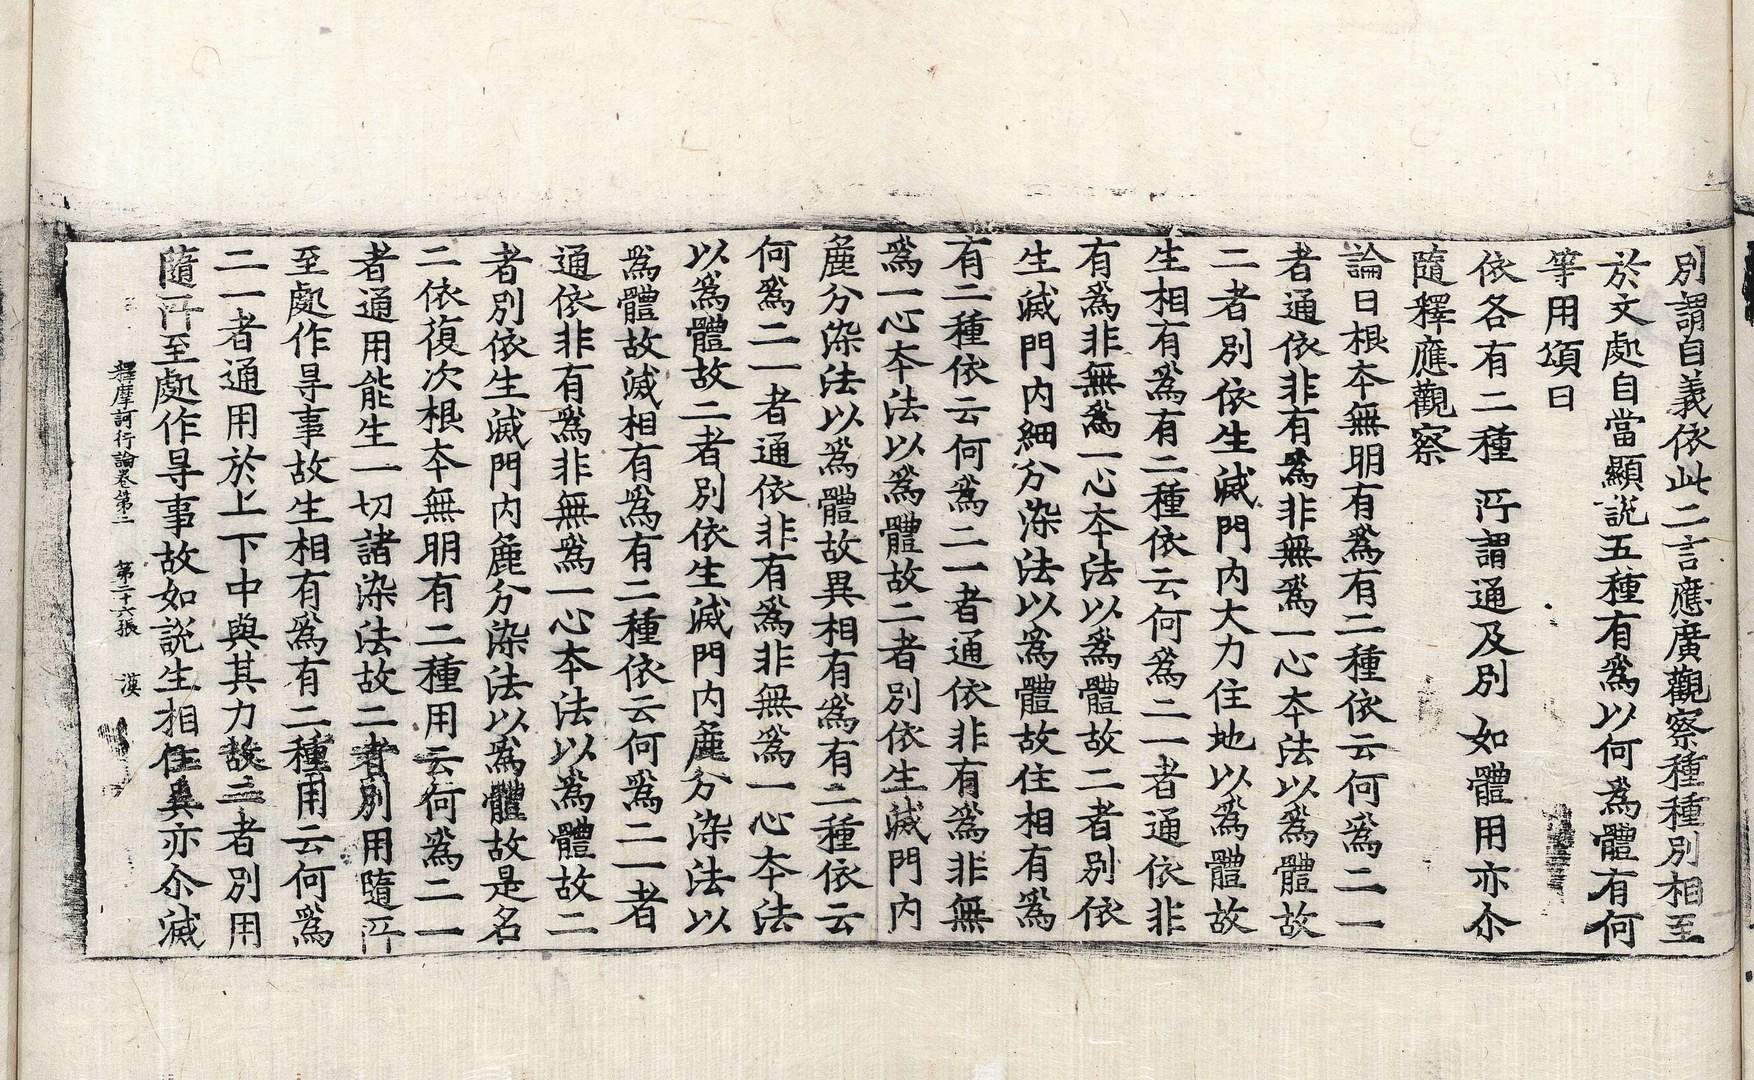 別謂自義依此二言應廣觀察種種別相至
於文處自當顯説五種有爲以何爲體有何
等用頌曰
依各有二種 所謂通及別 如體用亦尒
隨釋應觀察
論曰根夲無明有爲有二種依云何爲二一
者通依非有爲非無爲一心夲法以爲體故
二者別依生滅門内大力住地以爲體故
生相有爲有二種依云何爲二一者通依非
有爲非無爲一心夲法以爲體故二者別依
生滅門内細分染法以爲體故住相有爲
有二種依云何爲二一者通依非有爲非無
爲一心夲法以爲體故二者別依生滅門内
麁分染法以爲體故異相有爲有二種依云
何爲二一者通依非有爲非無爲一心夲法
以爲體故二者別依生滅門内麁分染法以
爲體故滅相有爲有二種依云何爲二一者
通依非有爲非無爲一心夲法以爲體故二
者別依生滅門内麁分染法以爲體故是名
二依復次根夲無明有二種用云何爲二一
者通用能生一切諸染法故二者別用隨所
至處作㝵事故生相有爲有二種用云何爲
二一者通用於上下中與其力故二者別用
隨所至處作㝵事故如説生相住異亦尒滅
釋摩訶衍論卷第二 第二十六張 漢